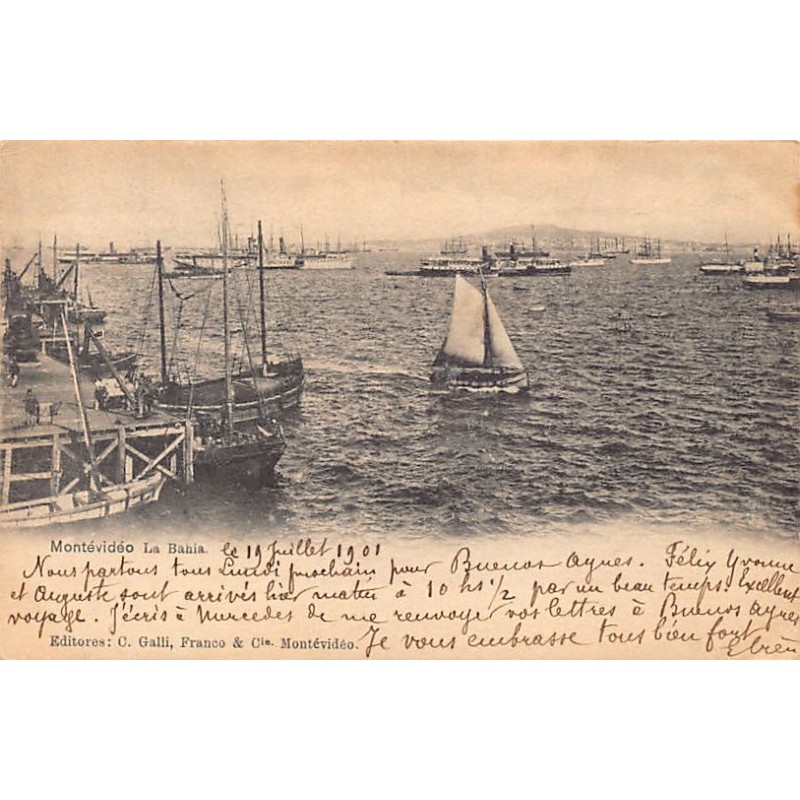 Montévidéo La Bahia. le 19 Juillet 1901
Nous partons tous Lundi prochain pour Buenos Ayres. Félix Yvonne
et Auguste sont arrivés hier matin à 10 hs ½ par un beau temps. Excellent
voyage. J'écris à Mercedes de me renvoyer vos lettres à Buenos Ayres
Editores: C. Galli, Franco & Cia. Montévidéo. Je vous embrasse tous bien fort